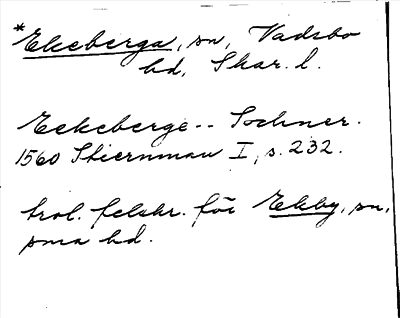 *Ekeberga, sn, Vadsbo
hd, Skar. l.
Eekeberge -- Sochner.
1560 Stiernman I, s. 232.
trol. felskr. för Ekby, sn,
sma hd.